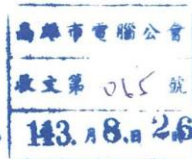 高雄市電腦公會
收文第 065 號
113. 8. 26